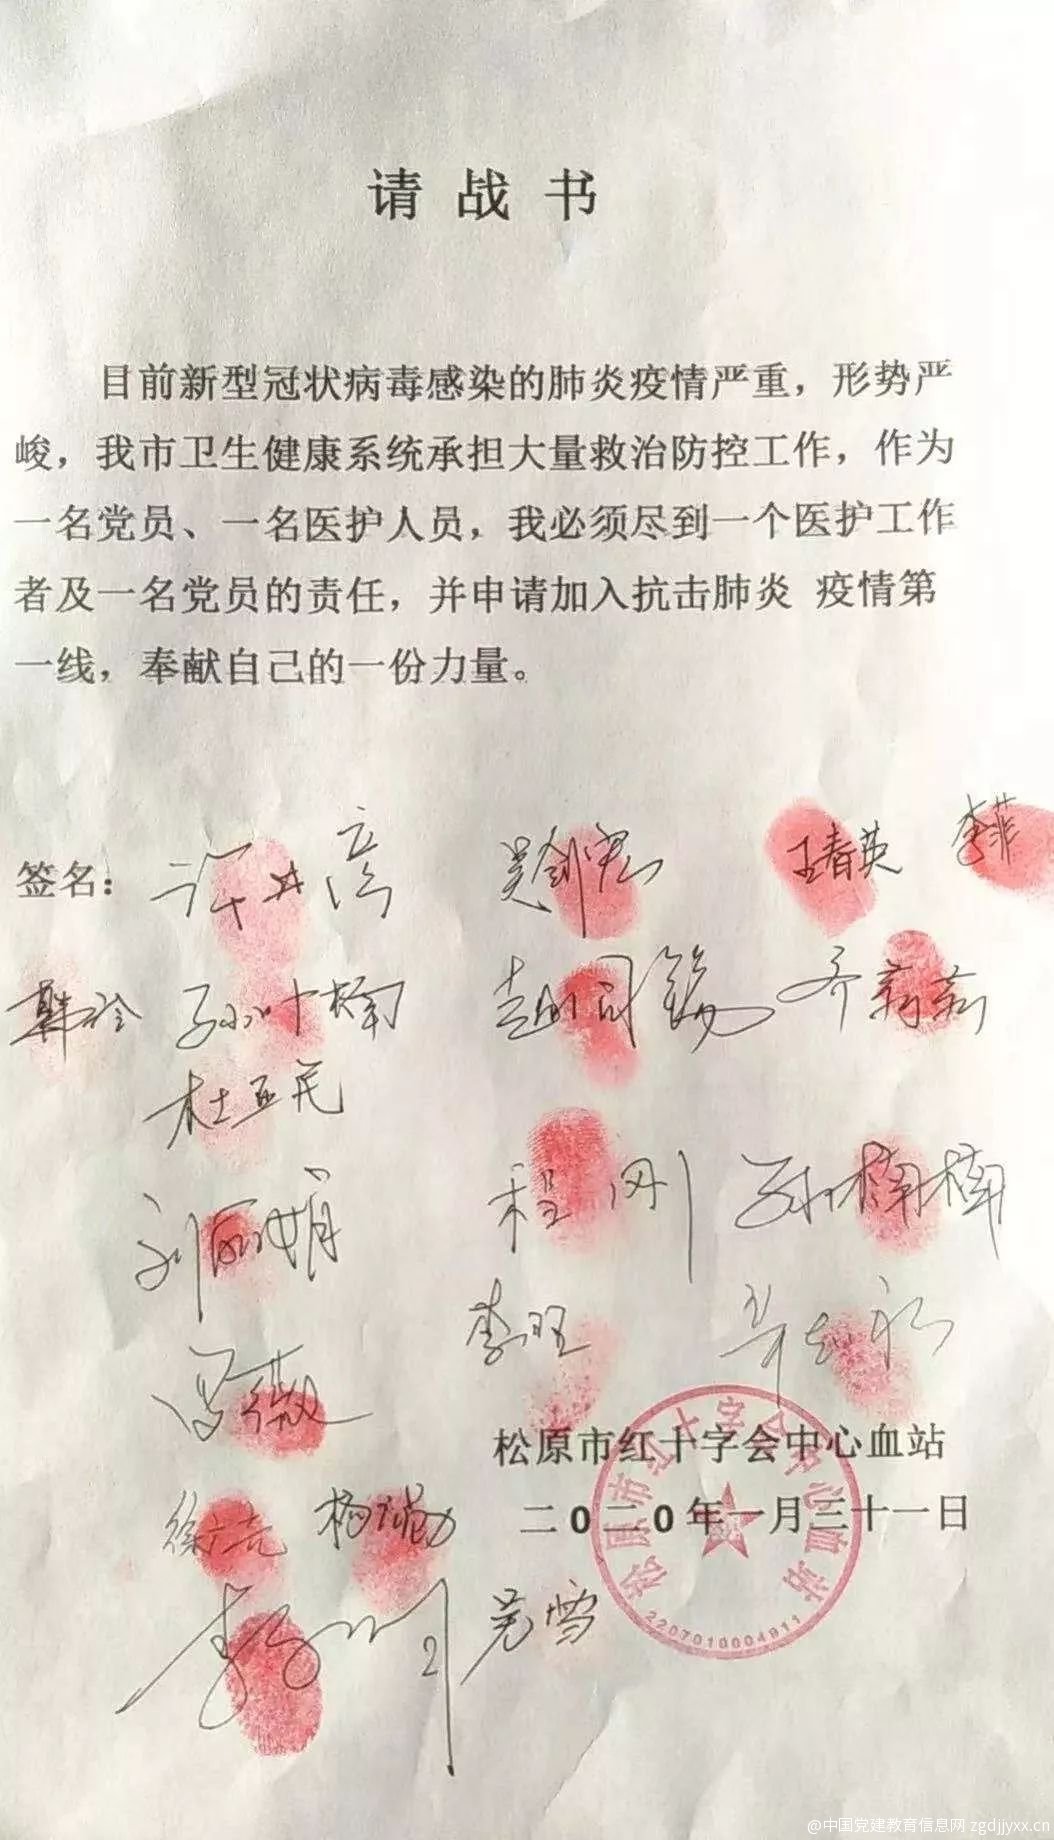 请战书
目前新型冠状病毒感染的肺炎疫情严重，形势严
峻，我市卫生健康系统承担大量救治防控工作，作为
一名党员、一名医护人员，我必须尽到一个医护工作
者及一名党员的责任，并申请加入抗击肺炎 疫情第
一线，奉献自己的一份力量。
签名： 王春英 李菲
韩玲 齐莉莉
杜亚民
程刚 孙楠楠
李旺
冯薇
松原市红十字会中心血站
徐亮 杨 二0二0年一月三十一日
雪
松原市红十字会中心血站
2207010004911
@中国党建教育信息网 zgdjjyxx.cn